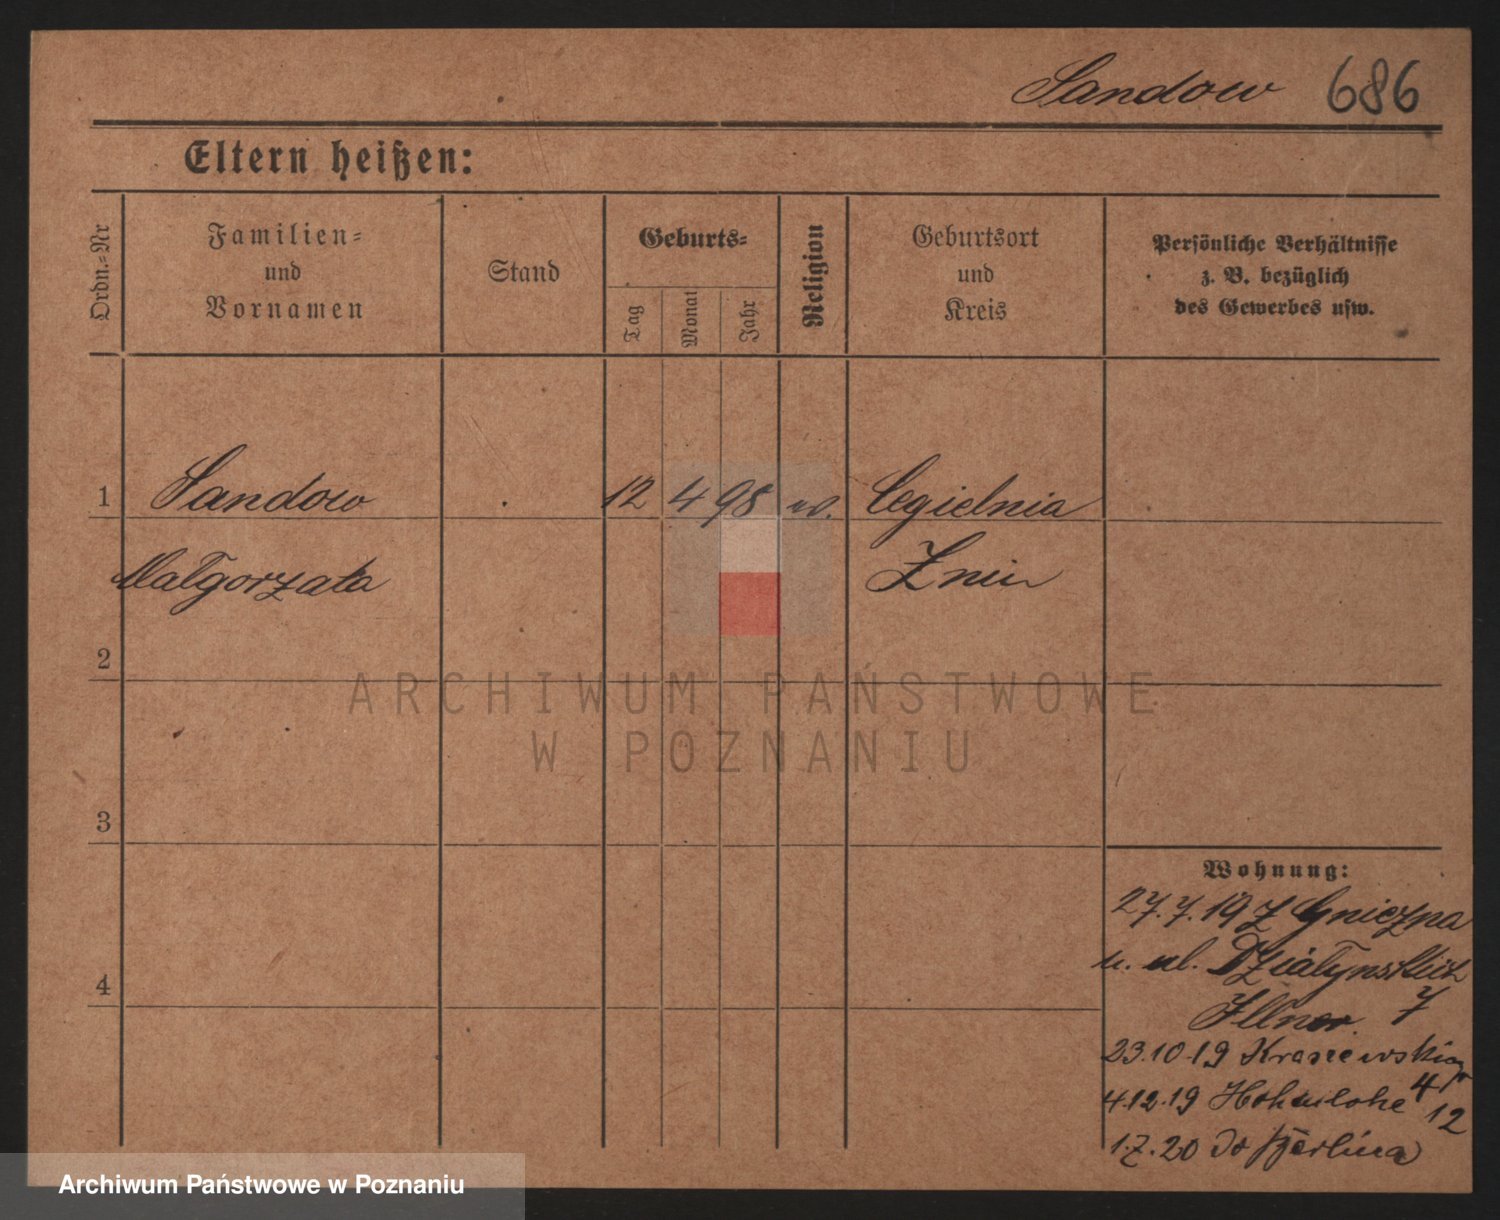 Sandow 686
Eltern heißen:
Ordn.-Nr
Familien-
und
Vornamen
Stand
Geburts-
Tag
Monat
Jahr
Religion
Geburtsort
und
Kreis
Persönliche Verhältnisse
z. B. bezüglich
des Gewerbes usw.
1 Sandow 12 4 98 w. Cegielnia
Małgorzata Żnin
2
3
4
Wohnung:
27.7.19 z Gniezna
u. ul. Działyńskich
Illner. 7
23.10.19 Kraszewskiego
4
4.12.19 Hohenlohe
12
1.7.20 do Berlina
ARCHIWUM PAŃSTWOWE
W POZNANIU
Archiwum Państwowe w Poznaniu